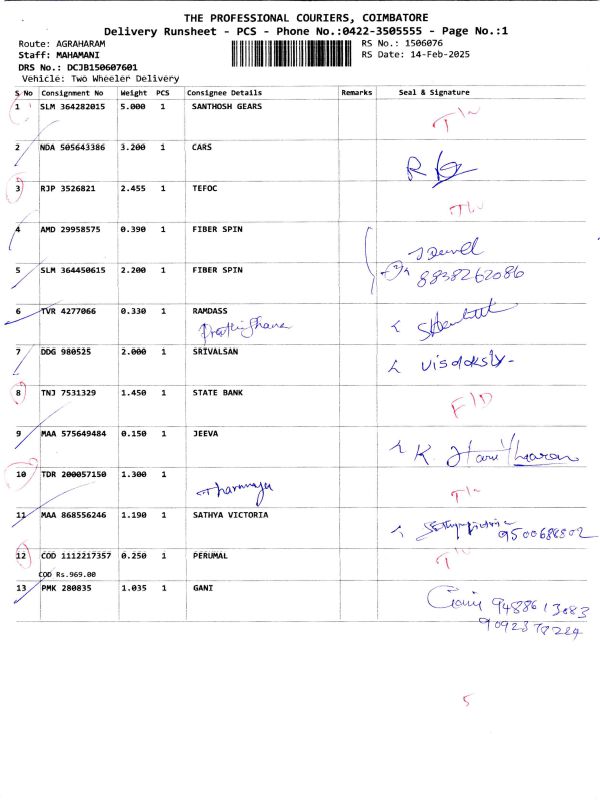 THE PROFESSIONAL COURIERS, COIMBATORE
Delivery Runsheet - PCS - Phone No.:0422-3505555 - Page No.:1
Route: AGRAHARAM RS No.: 1506076
Staff: MAHAMANI RS Date: 14-Feb-2025
DRS No.: DCJB150607601
Vehicle: Two Wheeler Delivery
S No Consignment No Weight PCS Consignee Details Remarks Seal & Signature
1 SLM 364282015 5.000 1 SANTHOSH GEARS
2 NDA 505643386 3.200 1 CARS
3 RJP 3526821 2.455 1 TEFOC
4 AMD 29958575 0.390 1 FIBER SPIN
5 SLM 364450615 2.200 1 FIBER SPIN 8838262086
6 TVR 4277066 0.330 1 RAMDASS
7 DDG 980525 2.000 1 SRIVALSAN
8 TNJ 7531329 1.450 1 STATE BANK F/D
9 MAA 575649484 0.150 1 JEEVA K. Hariharan
10 TDR 200057150 1.300 1
11 MAA 868556246 1.190 1 SATHYA VICTORIA
12 COD 1112217357 0.250 1 PERUMAL
COD Rs.969.00
13 PMK 280835 1.035 1 GANI Gani 9488613083
9092378224
5